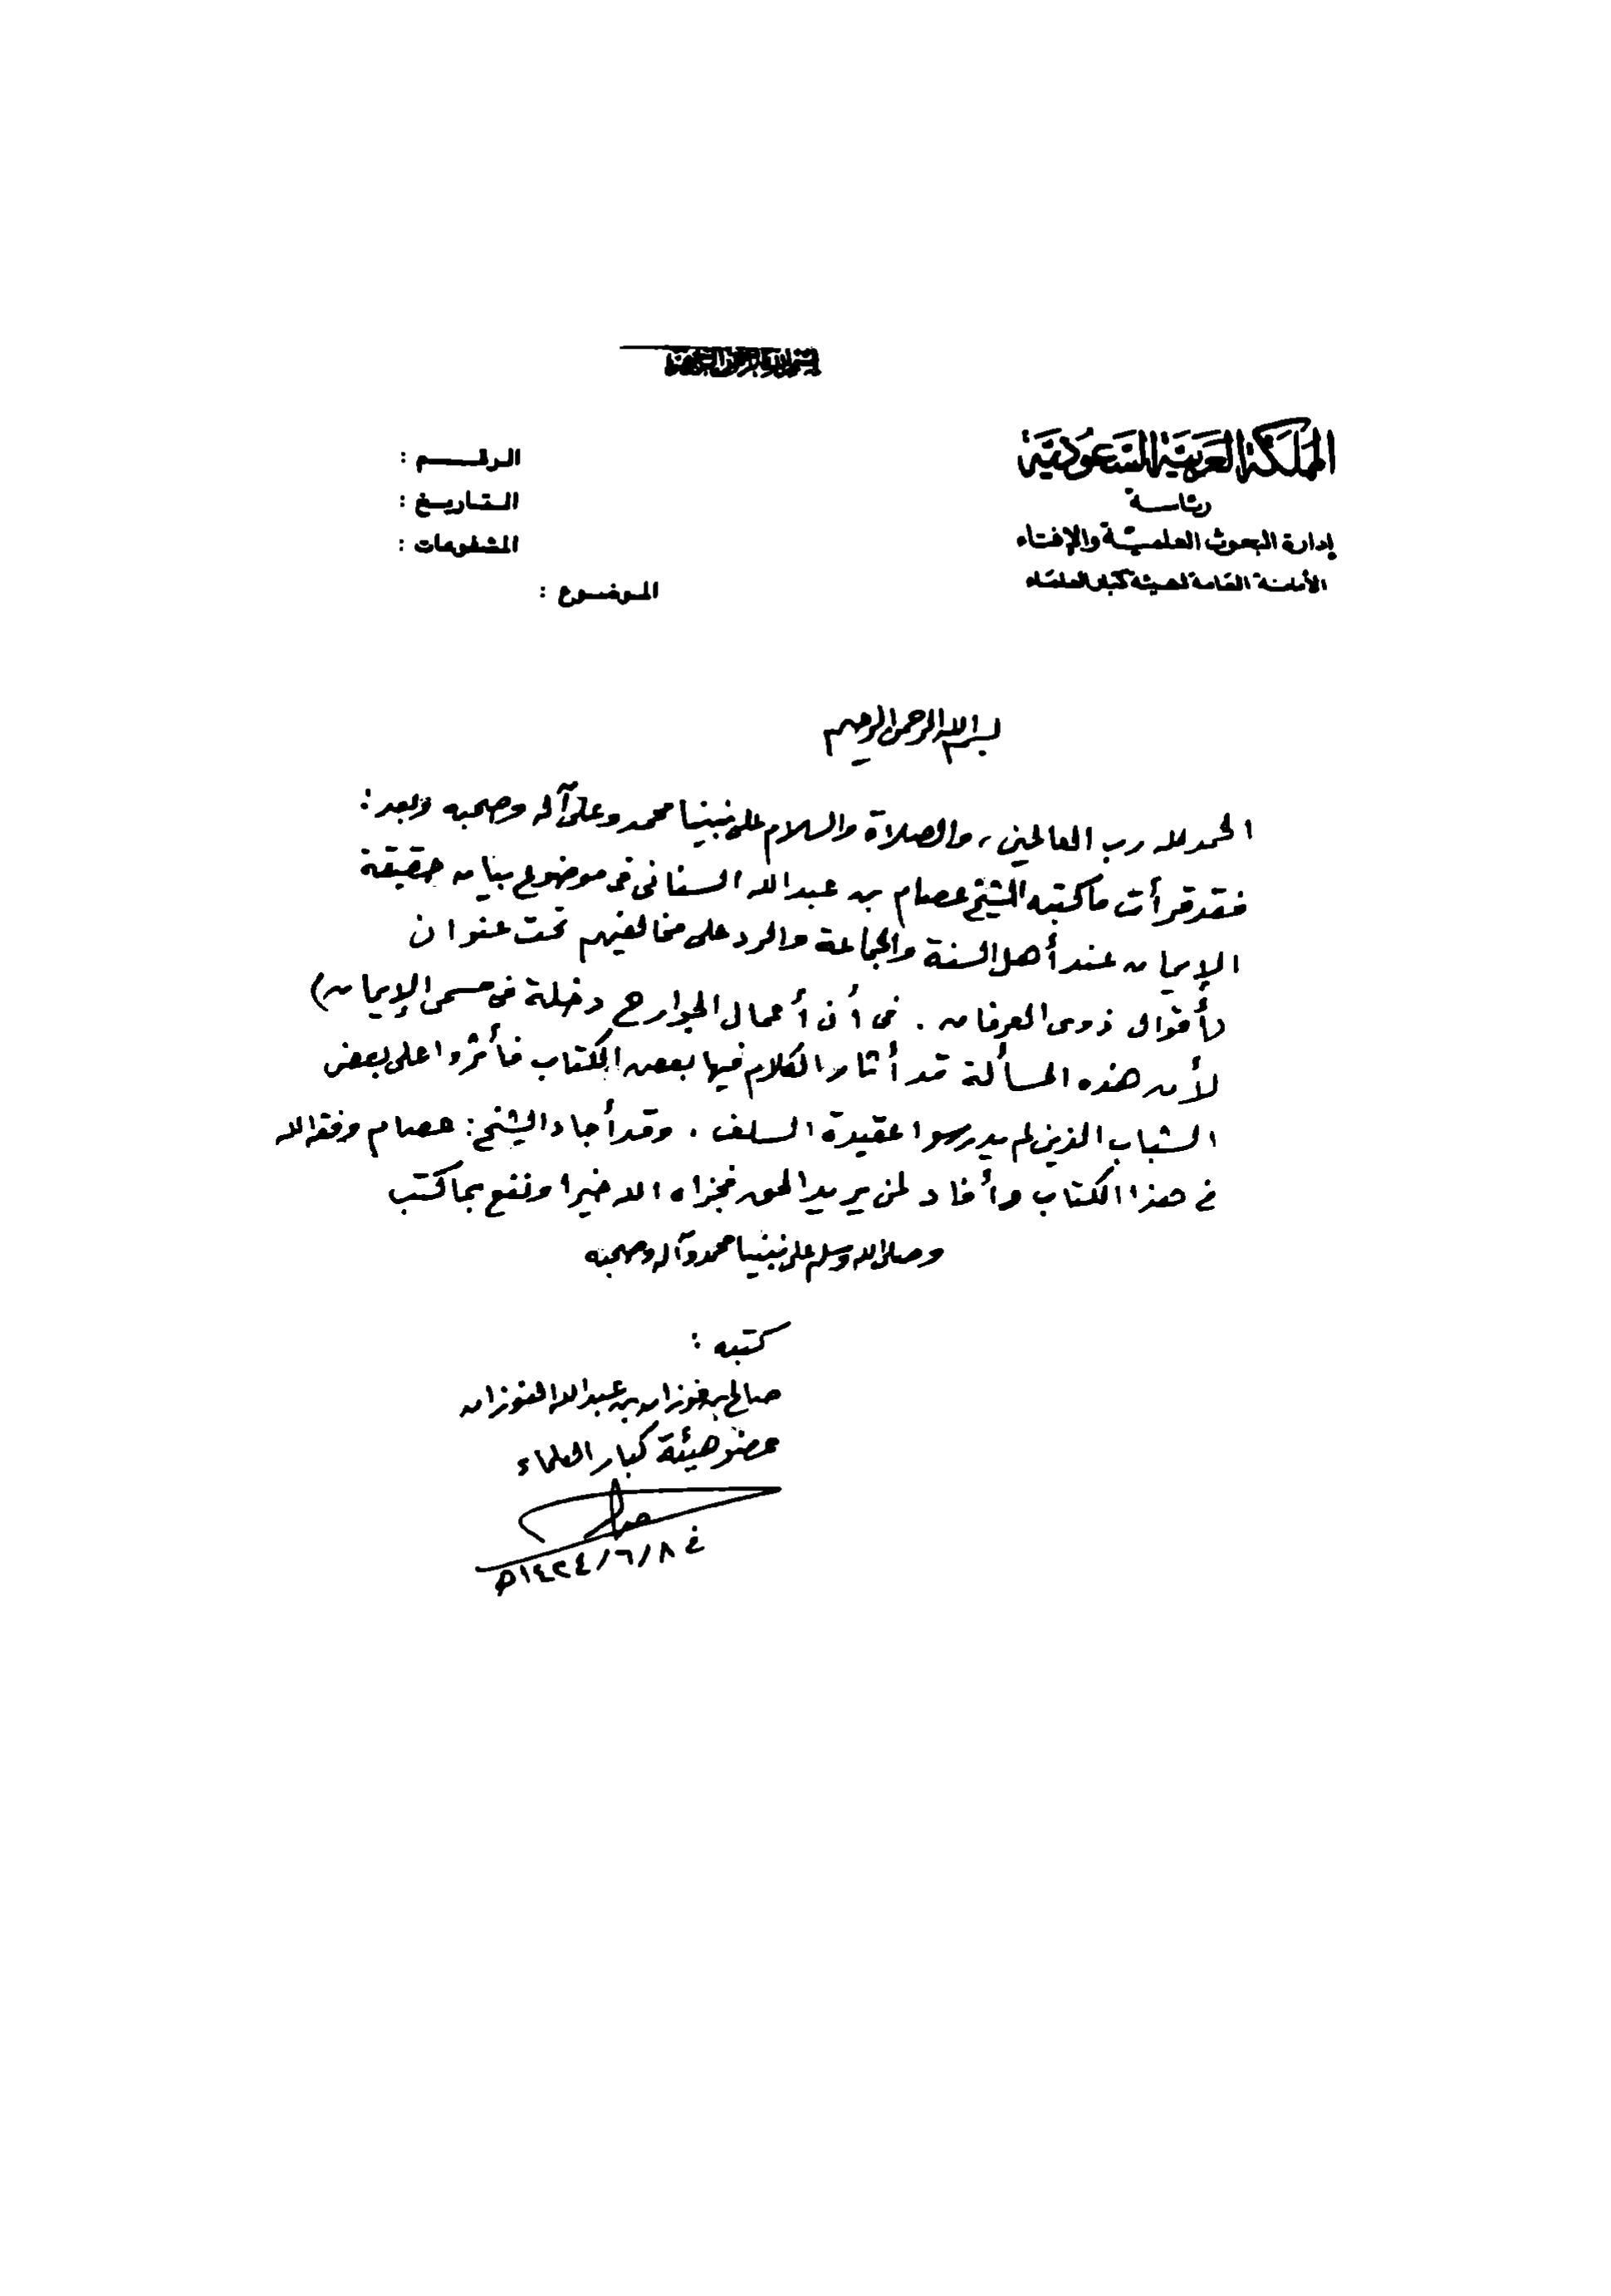 بسم الله الرحمن الرحيم
المملكة العربية السعودية
رئاسة
إدارة البحوث العلمية والإفتاء
الأمانة العامة لهيئة كبار العلماء
الرقم :
التاريخ :
المشفوعات :
الموضوع :
بسم الله الرحمن الرحيم
الحمد لله رب العالمين، والصلاة والسلام على نبينا محمد وعلى آله وصحبه وبعد :
فقد قرأت ما كتبه الشيخ عصام بن عبد الله السناني في موضوع بيان حقيقة
الإيمان عند أهل السنة والجماعة والرد على مخالفيهم تحت عنوان
(أقوال ذوي العرفان . في أن أعمال الجوارح دخلة في مسمى الإيمان)
لأن هذه المسألة قد أثار الكلام فيها بعض الكتاب فأثروا على بعض
الشباب الذين لم يدرسوا عقيدة السلف . وقد أجاد الشيخ : عصام وفقه الله
في هذا الكتاب وأفاد لمن يريد الحق فجزاه الله خيرا ونفع بما كتب
وصلى الله وسلم على نبينا محمد وآله وصحبه
كتبه :
صالح بن فوزان بن عبد الله الفوزان
عضو هيئة كبار العلماء
صالح
في ٨/٦/١٤٢٤هـ